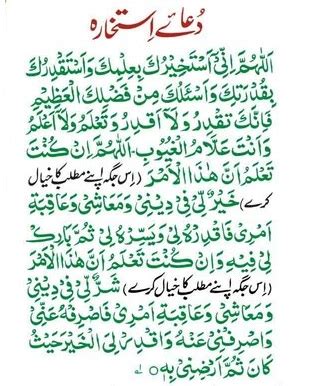 دُعائے اِستخارہ
اَللّٰهُمَّ اِنِّیْ اَسْتَخِیْرُكَ بِعِلْمِكَ وَاَسْتَقْدِرُكَ
بِقُدْرَتِكَ وَاَسْئَلُكَ مِنْ فَضْلِكَ الْعَظِیْمِ
فَاِنَّكَ تَقْدِرُ وَلَا اَقْدِرُ وَتَعْلَمُ وَلَا اَعْلَمُ
وَاَنْتَ عَلَّامُ الْغُیُوْبِ۔ اَللّٰهُمَّ اِنْ كُنْتَ
تَعْلَمُ اَنَّ هٰذَا الْاَمْرَ (اِس جگہ اپنے مطلب کا خیال
کرے) خَیْرٌ لِّیْ فِیْ دِیْنِیْ وَمَعَاشِیْ وَعَاقِبَةِ
اَمْرِیْ فَاقْدِرْهُ لِیْ وَیَسِّرْهُ لِیْ ثُمَّ بَارِكْ
لِیْ فِیْهِ وَاِنْ كُنْتَ تَعْلَمُ اَنَّ هٰذَا الْاَمْرَ
(اِس جگہ اپنے مطلب کا خیال کرے) شَرٌّ لِّیْ فِیْ دِیْنِیْ
وَمَعَاشِیْ وَعَاقِبَةِ اَمْرِیْ فَاصْرِفْهُ عَنِّیْ
وَاصْرِفْنِیْ عَنْهُ وَاقْدِرْ لِیَ الْخَیْرَ حَیْثُ
كَانَ ثُمَّ اَرْضِنِیْ بِهٖ ۝